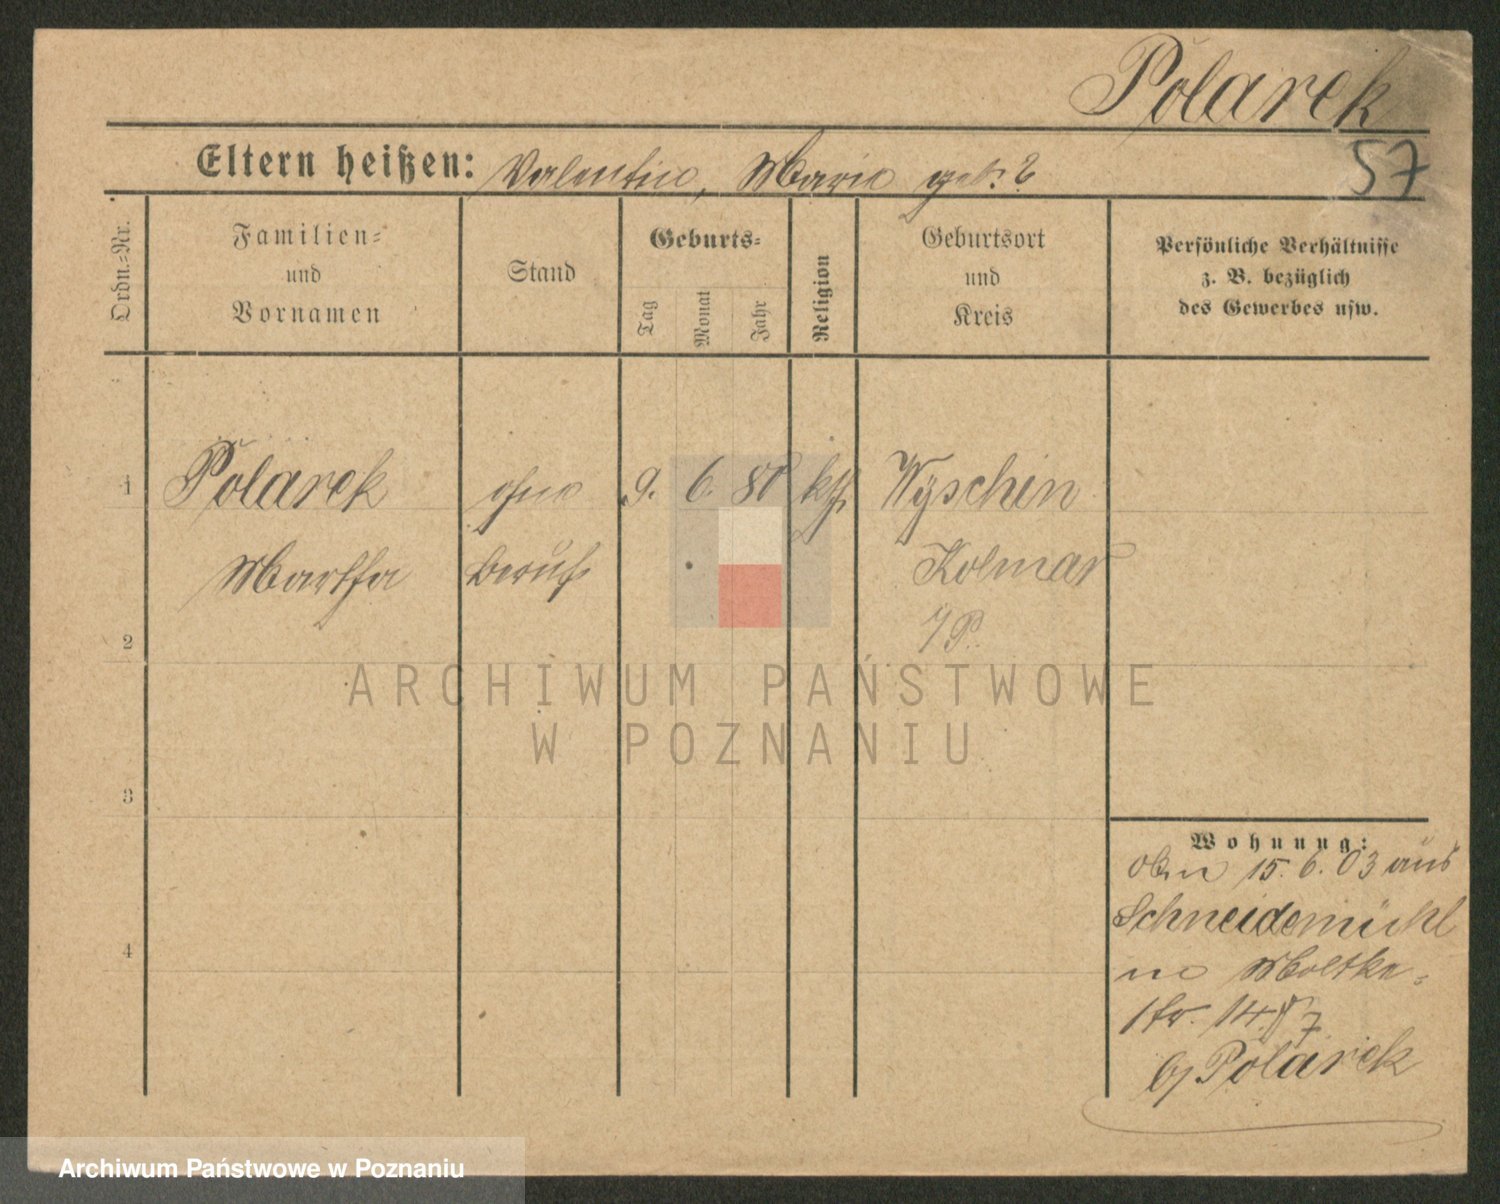 Polarek
57
Eltern heißen: Valentin, Marie geb. ?
Ordn.-Nr.
Familien-
und
Vornamen
Stand
Geburts-
Tag
Monat
Jahr
Religion
Geburtsort
und
Kreis
Persönliche Verhältnisse
z. B. bezüglich
des Gewerbes usw.
1 Polarek ohne 9. 6. 80 kth Wyschin
Martha Beruf Kolmar
i/P.
2
3
4
ARCHIWUM PAŃSTWOWE
W POZNANIU
Wohnung:
15. 6. 03 aus
Schneidemühl
Moltke-
str. 14
b/ Polarek
Archiwum Państwowe w Poznaniu